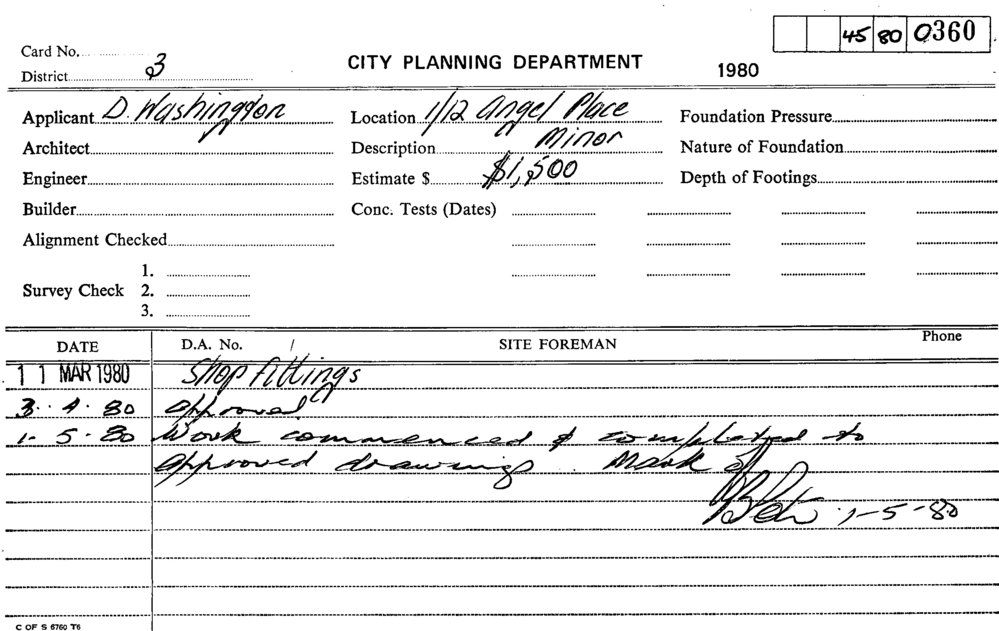 45 80 0360
Card No.
District 3
CITY PLANNING DEPARTMENT
1980
Applicant D. Washington Location 1/12 Angel Place Foundation Pressure
Architect Description Minor Nature of Foundation
Engineer Estimate $ $1,500 Depth of Footings
Builder Conc. Tests (Dates)
Alignment Checked
1.
Survey Check 2.
3.
DATE D.A. No. / SITE FOREMAN Phone
11 MAR 1980 Shop fittings
3.4.80 approved
1-5-80 Work commenced & completed to
approved drawings. Mark
1-5-80
C OF S 6760 T6